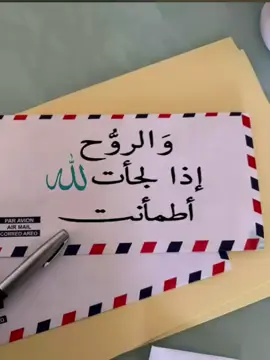 وَالروُّح
إذا لجأت لله
أطمأنت
PAR AVION
AIR MAIL
CORREO AEREO